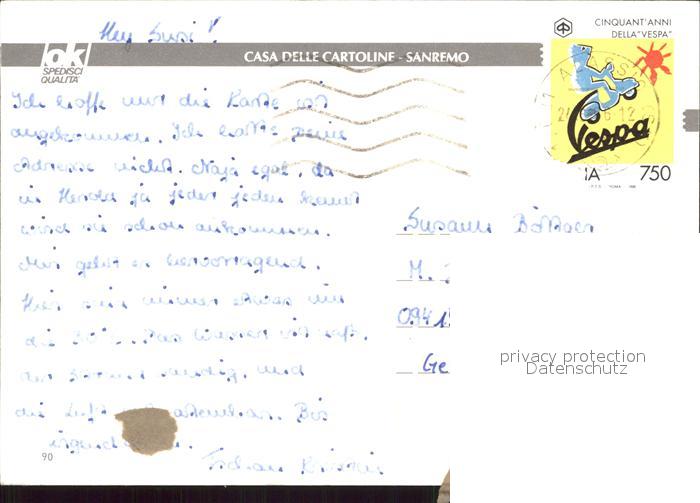 Hey Susi!
ok
SPEDISCI
QUALITA'
CASA DELLE CARTOLINE - SANREMO
CINQUANT'ANNI
DELLA "VESPA"
Vespa
IA 750
Ich hoffe mal die Karte ist
angekommen. Ich hatte deine
Adresse nicht. Naja egal, da
in ja jeder jeden kennt
wird sie schon ankommen.
Mir geht es hervorragend.
Hier sind immer etwas um
die 30°C. Das Wasser ist
der Strand sandig, und
die Luft Bis
irgend
Susann
M.
0941
Ge
privacy protection
Datenschutz
90